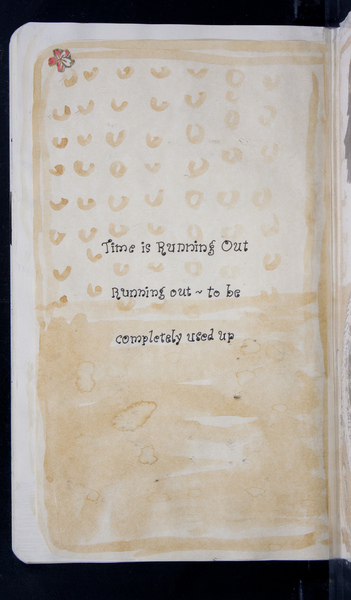 Time is Running Out
Running out ~ to be
completely used up